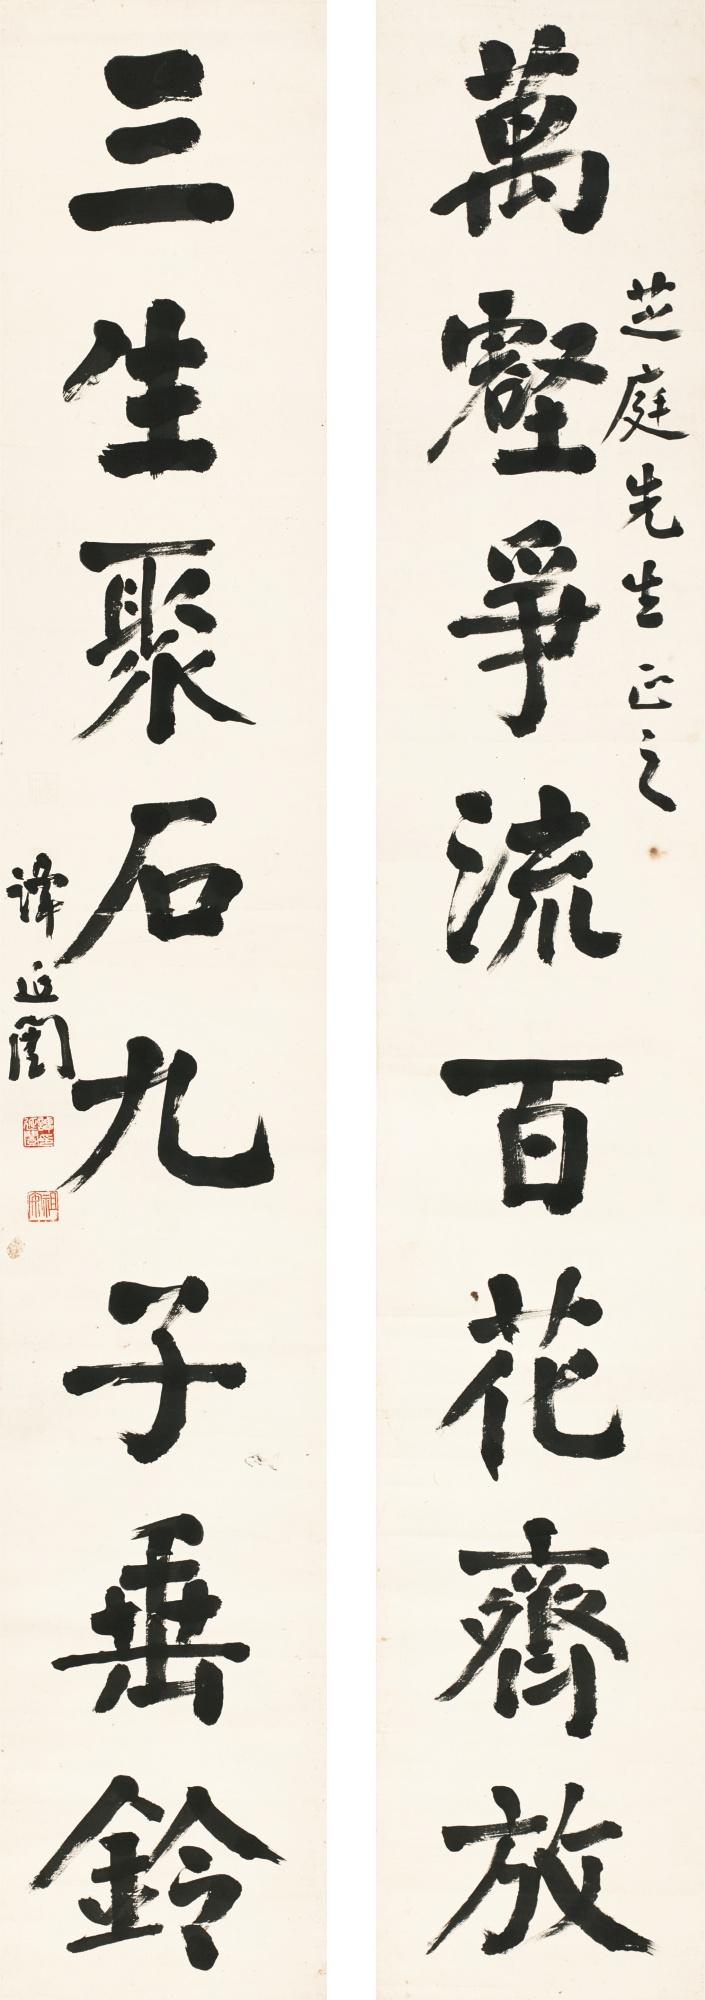 萬壑爭流百花齊放
芝庭先生正之
三生聚石九子垂鈴
譚延闓